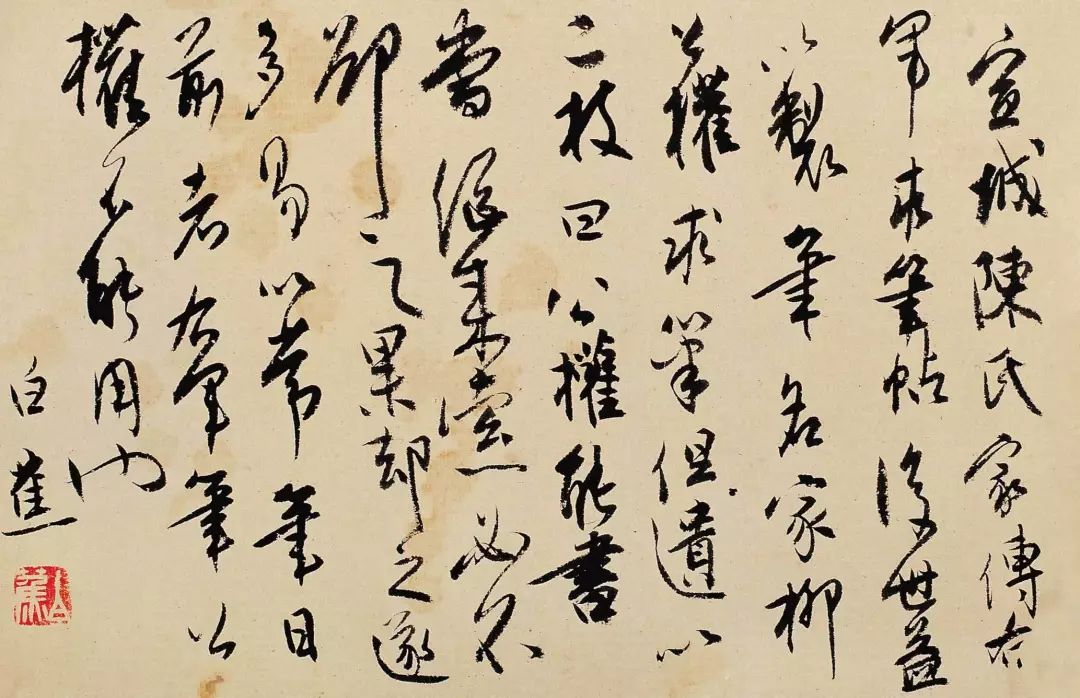 宣城陳氏家傳右
軍求筆帖後世益
以製筆名家柳
公權求筆但遺以
二枝曰公權能書
當繼來索必不
卻之果却之遂
多易以常筆曰
前者右軍筆公
權不能用也
白蕉
白蕉